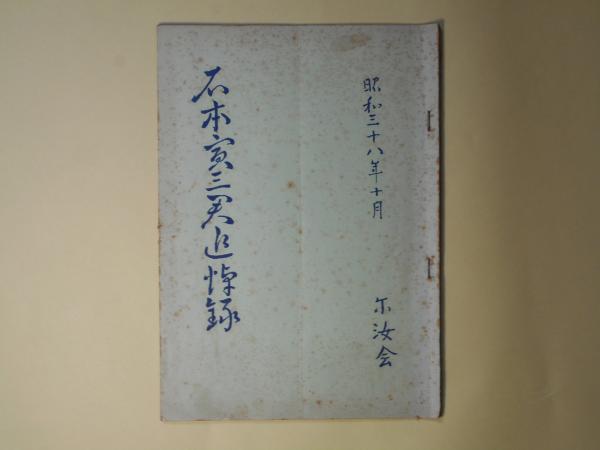 昭和三十八年十月
石本寅三君追悼録
尓汝会